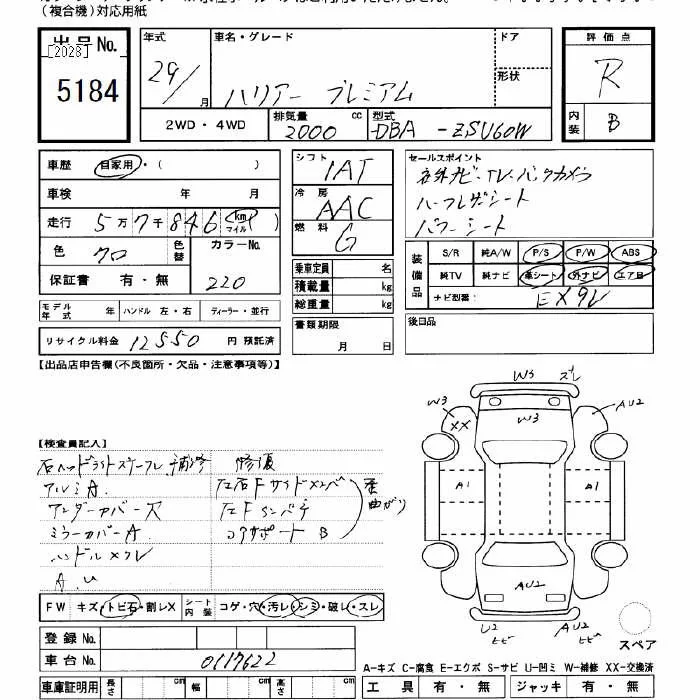 (複合機)対応用紙
出品No.
[2028]
5184
年式
29/
月
車名・グレード
ハリアー プレミアム
ドア
形状
評価点
R
内装
B
2WD・4WD
排気量
2000
cc
型式
DBA -ZSU60W
車歴
自家用・( )
車検
年 月
走行
5万7千846(km マイル)
色
クロ
色替
カラーNo.
220
保証書 有・無
シフト
IAT
冷房
AAC
燃料
G
乗車定員 名
積載量 kg
総重量 kg
セールスポイント
社外ナビ・TV・バックカメラ
ハーフレザーシート
パワーシート
装備品
S/R 純A/W P/S P/W ABS
純TV 純ナビ 革シート 外ナビ エアB
ナビ型番:
EX9V
モデル年式 年 ハンドル 左・右 ディーラー・並行
リサイクル料金 12550 円 預託済
書類期限
月 日
後日品
【出品店申告欄(不良箇所・欠品・注意事項等)】
【検査員記入】
右ヘッドライトステーフレ 補修
アルミA.
アンダーカバー欠
ミラーカバーA
ハンドルスレ
A.U
修復
左右Fサイドメンバ
左Fインパチ
コアサポート B
歪 曲がり
W3 ズレ
W3
XX
W3
AU2
A1
A1
AU2
U2
ヒビ
AU2
ヒビ
スペア
FW キズ・トビ石・割レX シート内装 コゲ・穴・汚レ・シミ・破レ・スレ
登録No.
車台No.
0117622
車庫証明用 長さ cm 幅 cm 高さ cm
A-キズ C-腐食 E-エクボ S-サビ U-凹ミ W-補修 XX-交換済
工具 有・無 ジャッキ 有・無